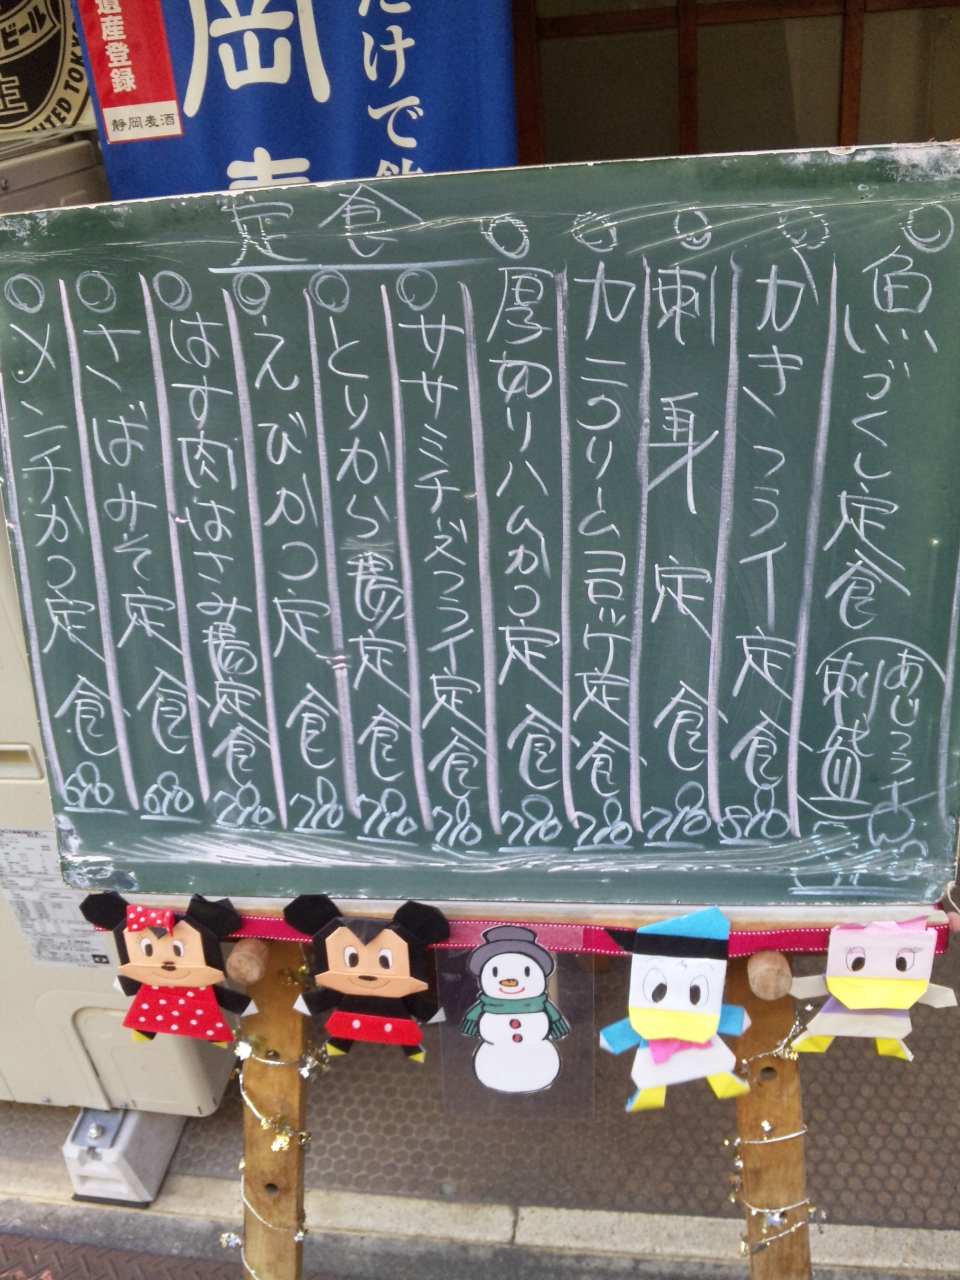 遺産登録
静岡麦酒
岡
だけで
ビール
LIMITED TOKYO
定食
◎魚づくし定食
あじフライ
刺盛
◎かきフライ定食 890
◎刺身定食 790
◎カニクリームコロッケ定食 790
◎厚切りハムかつ定食 790
◎ササミチーズフライ定食 790
◎とりから揚定食 790
◎えびかつ定食 790
◎はす肉はさみ揚定食 790
◎さばみそ定食 690
◎メンチかつ定食 690